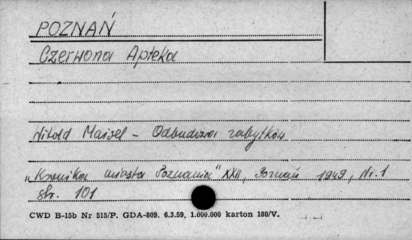 POZNAŃ
Czerwona Apteka
Witold Maisel – Odbudowa zabytków
„Kronika miasta Poznania" XXII, Poznań 1949, Nr. 1
str. 101
CWD B-15b Nr 515/P. GDA-809. 6.3.59, 1.000.000 karton 180/V.